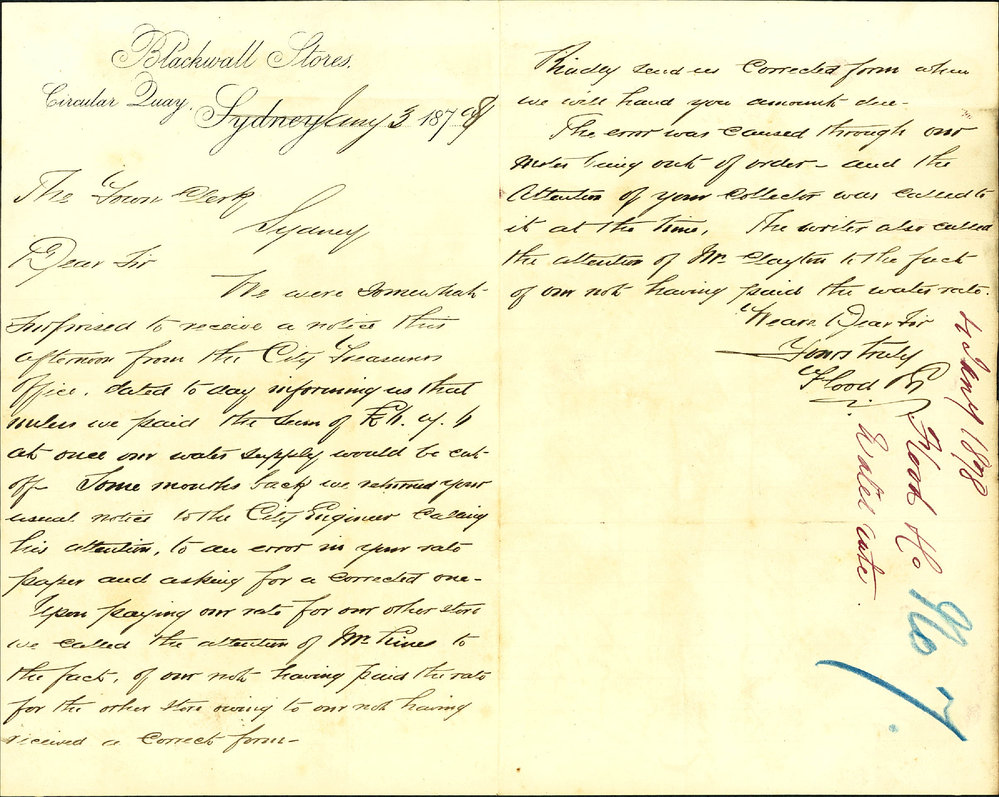 Blackwall Stores.
Circular Quay.
Sydney Jany 3 1878
The Town Clerk
Sydney
Dear Sir
We were somewhat
surprised to receive a notice this
afternoon from the City Treasurers
Office, dated to day informing us that
unless we paid the sum of
at once our water supply would be cut
off - Some months back we returned your
usual notice to the City Engineer calling
his attention, to an error in your rate
paper and asking for a corrected one -
Upon paying our rate for our other store
we called the attention of Mr to
the fact, of our not having paid the rate
for the other store owing to our not having
received a correct form -
Kindly send us corrected form when
we will hand you amount due -
The error was caused through our
meter being out of order - and the
attention of your collector was called to
it at the time. The writer also called
the attention of Mr. Clayton to the fact
of our not having paid the water rate.
We are Dear Sir
Yours truly
Flood
4 Jany 1878
Flood
Water rate
No 7.